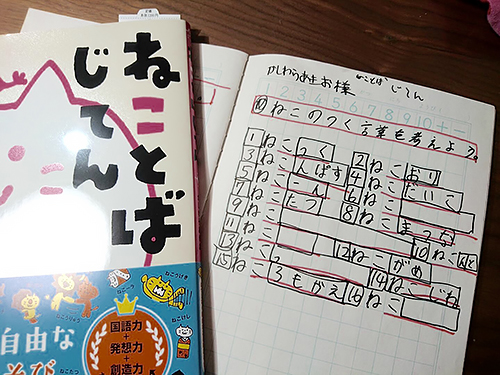 ねことば
じてん
ねこうけき
ねこーラ
ねこけし
国語力
+
発想力
+
創造力
自由な
あそび
かしわらあきお様 ねことば じてん
1 2 3 4 5 6 7 8 9 10 + −
⑩ ねこのつく言葉を考えよう。
1 ねこっく 2 ねこおり
3 ねこんぱす 4 ねこだいこ
5 ねここん 6 ねこ
7 ねこたつ 8 ねこまっち
9 ねこ 10 ねこ
11 ねこ 12 ねこがめ
13 ねこ 14 ねこじね
15 ねころもがえ 16 ねこ